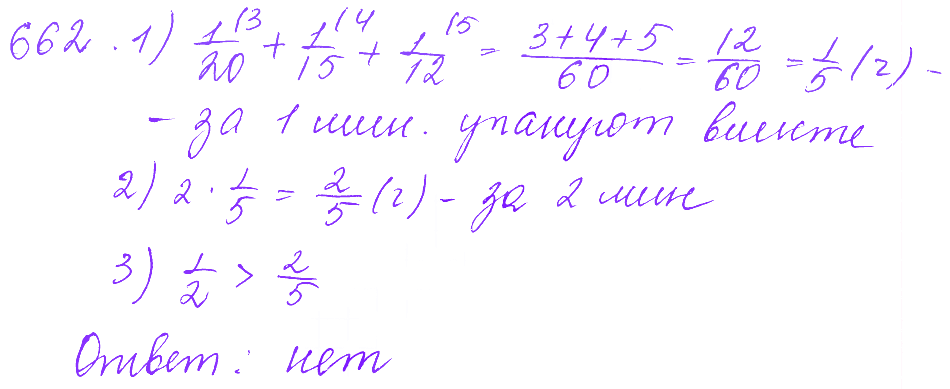 662. 1) 1/20 (3 + 1/15 (4 + 1/12 (5 = (3+4+5)/60 = 12/60 = 1/5 (г) -
- за 1 мин. упакуют вместе
2) 2 · 1/5 = 2/5 (г) - за 2 мин
3) 1/2 > 2/5
Ответ: нет